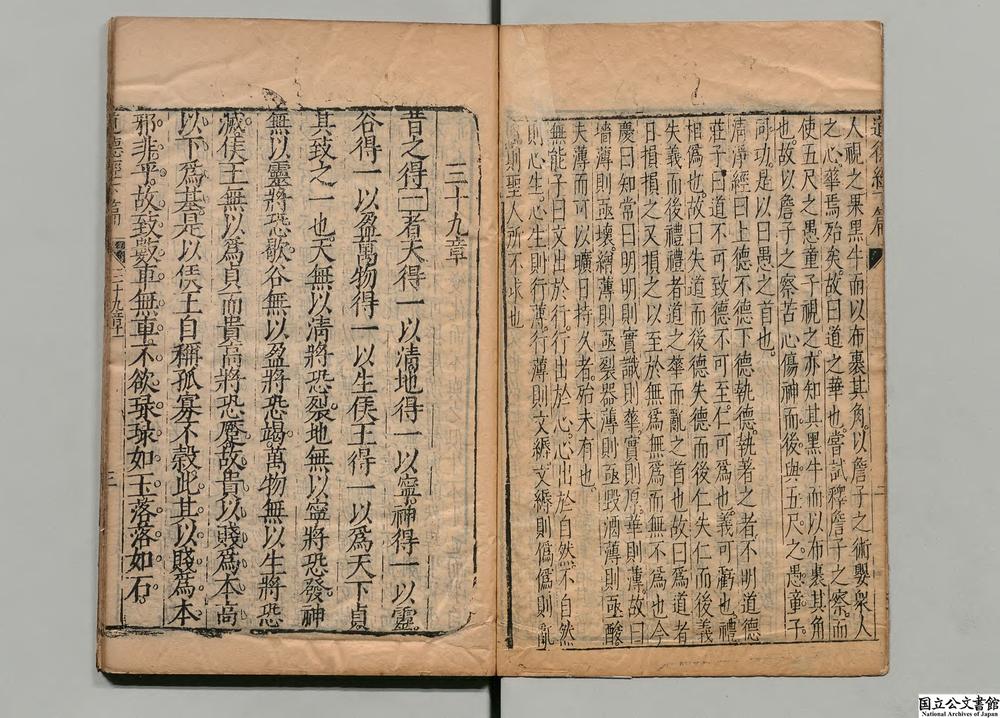 人視之果黑牛而以布裹其角以詹子之術嬰衆人
之心華焉殆矣故曰道之華也嘗試釋詹子之察而
使五尺之愚童子視之亦知其黑牛而以布裹其角
也故以詹子之察苦心傷神而後與五尺之愚童子
同功是以曰愚之首也
清淨經曰上德不德下德執德執著之者不明道德
莊子曰道不可致德不可至仁可為也義可虧也禮
相偽也故曰失道而後德失德而後仁失仁而後義
失義而後禮禮者道之華而亂之首也故曰為道者
日損損之又損之以至於無為無為而無不為也今
慶曰知常曰明明則實識則華實則厚華則薄故曰
墻薄則亟壞繒薄則亟裂器薄則亟毀酒薄則亟酸
夫薄而可以曠日持久者殆未有也
無能子曰文出於行行出於心心出於自然不自然
則心生心生則行薄行薄則文縟文縟則偽偽則亂
亂則聖人所不求也
三十九章
昔之得一者天得一以清地得一以寧神得一以靈
谷得一以盈萬物得一以生侯王得一以為天下貞
其致之一也天無以清將恐裂地無以寧將恐發神
無以靈將恐歇谷無以盈將恐竭萬物無以生將恐
滅侯王無以為貞而貴高將恐蹷故貴以賤為本高
以下為基是以侯王自稱孤寡不穀此其以賤為本
邪非乎故致數車無車不欲琭琭如玉落落如石
道德經下篇
三十九章
國立公文書館
National Archives of Japan